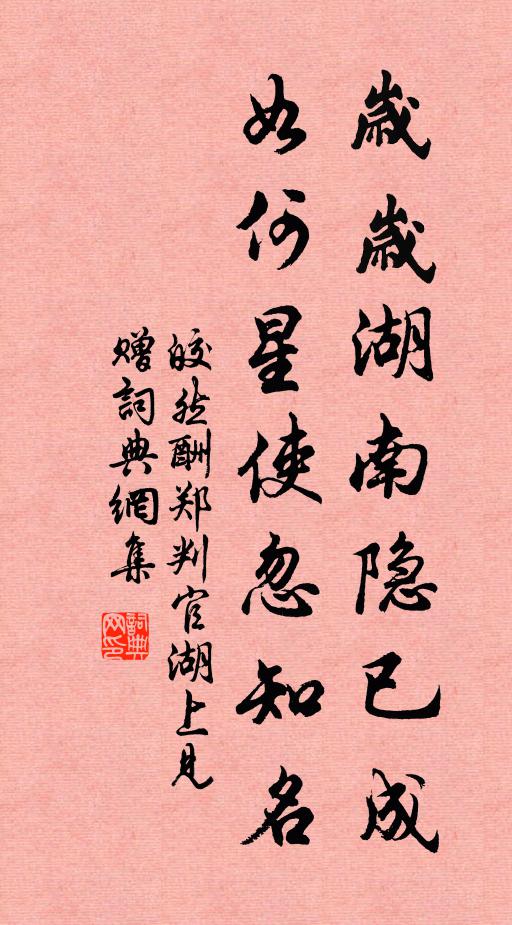 歲歲湖南隐已成
如何星使忽知名
皎然酬郑判官湖上見
赠詞典網集
詞典網印